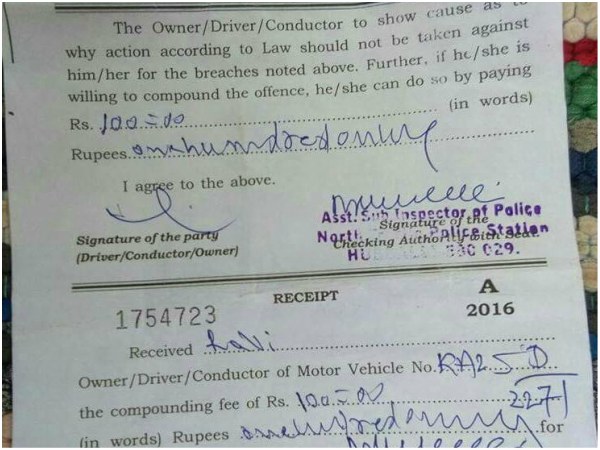 The Owner/Driver/Conductor to show cause as to
why action according to Law should not be taken against
him/her for the breaches noted above. Further, if he/she is
willing to compound the offence, he/she can do so by paying
Rs. 100=00 (in words)
Rupees onehundredonly
I agree to the above.
Asst. Sub Inspector of Police
Signature of the
Signature of the party
North Police Station
Checking Authority with Seal.
(Driver/Conductor/Owner)
HU 580 029.
RECEIPT
A
1754723
2016
Received Ravi
Owner/Driver/Conductor of Motor Vehicle No. KA25 D
2271
the compounding fee of Rs. 100=00
(in words) Rupees onehundredonly for